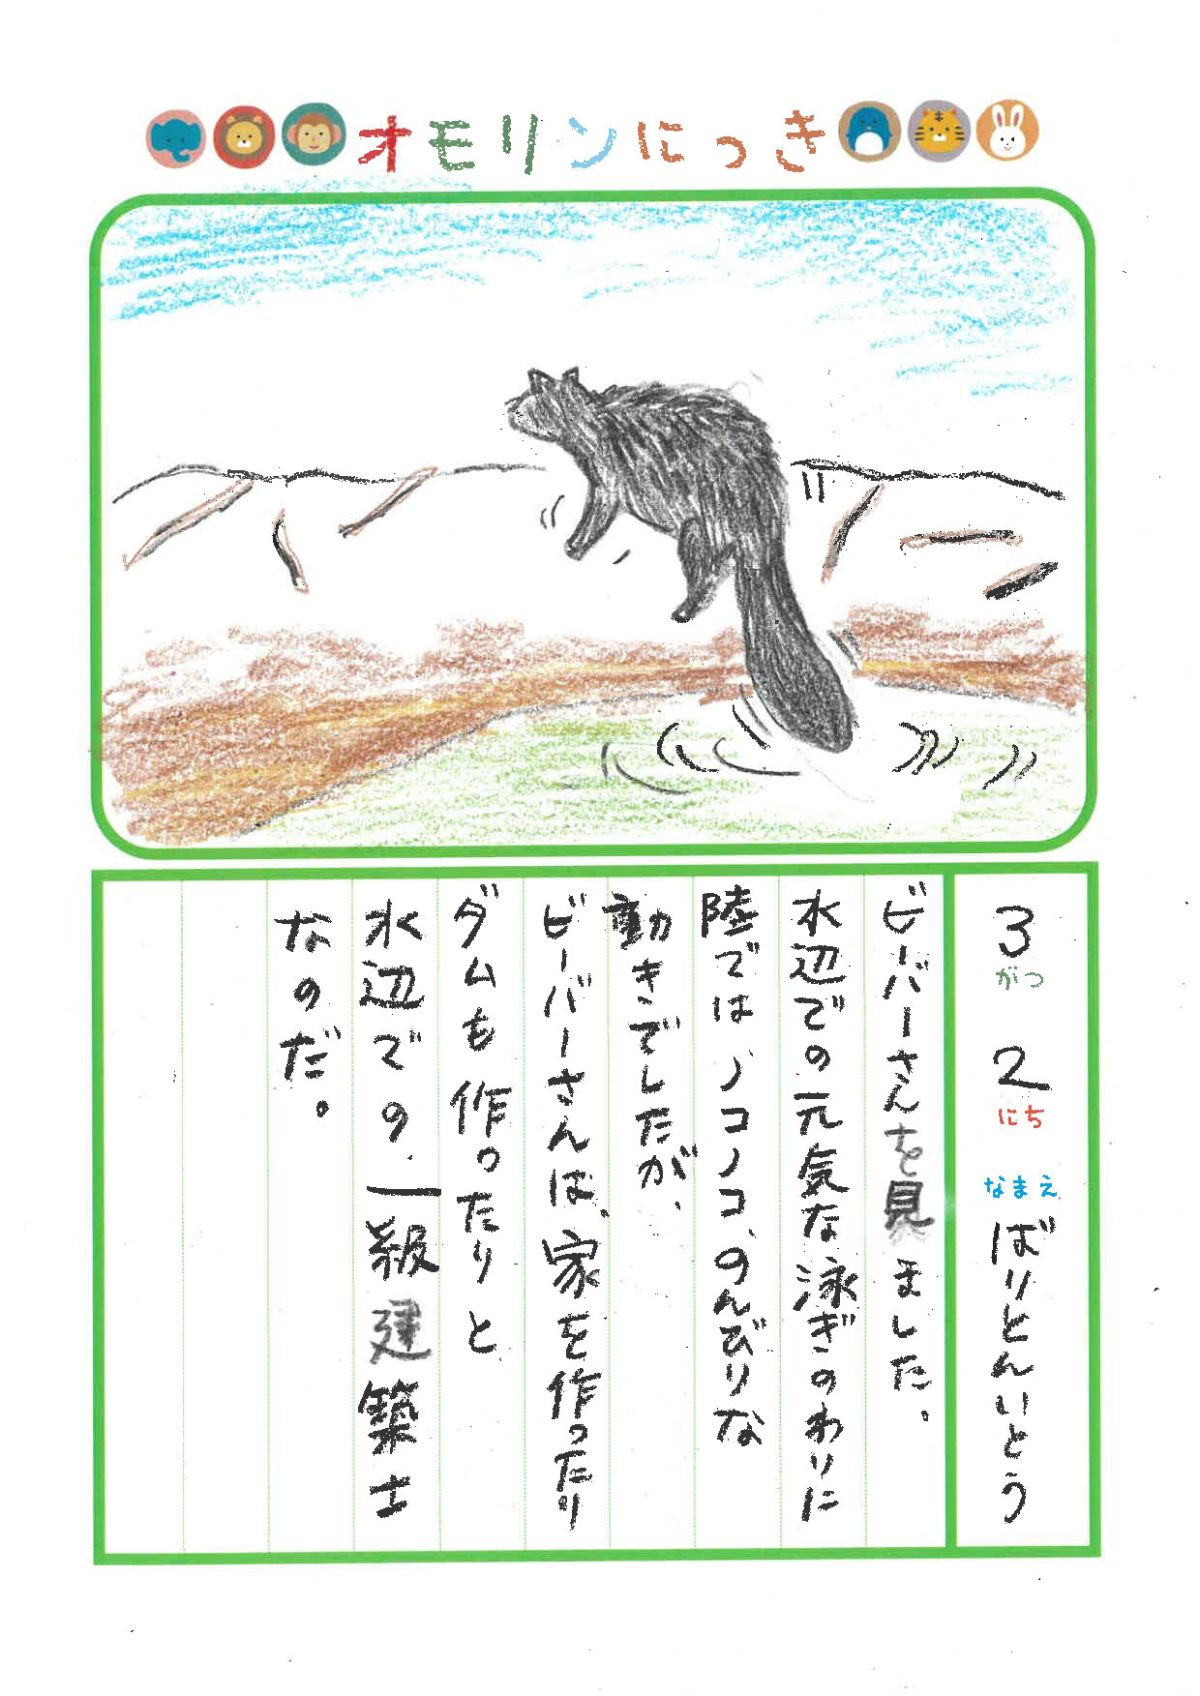 オモリンにっき
3がつ 2にち なまえ ばりとんいとう
ビーバーさんを見ました。
水辺での元気な泳ぎのわりに
陸ではノコノコ、のんびりな
動きでしたが、
ビーバーさんは、家を作ったり
ダムも作ったりと
水辺での、一級建築士
なのだ。